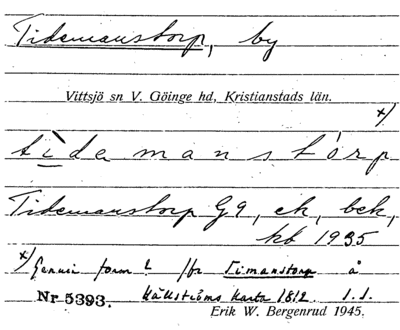 Tidemanstorp, by
Vittsjö sn V. Göinge hd, Kristianstads län.
x)
tìdamanstórp
Tidemanstorp G9, ek, bek,
kb 1935
x) Genuin form? Jfr Timanstorp å
Nr 5393. Hällströms karta 1812.
Erik W. Bergenrud 1945.